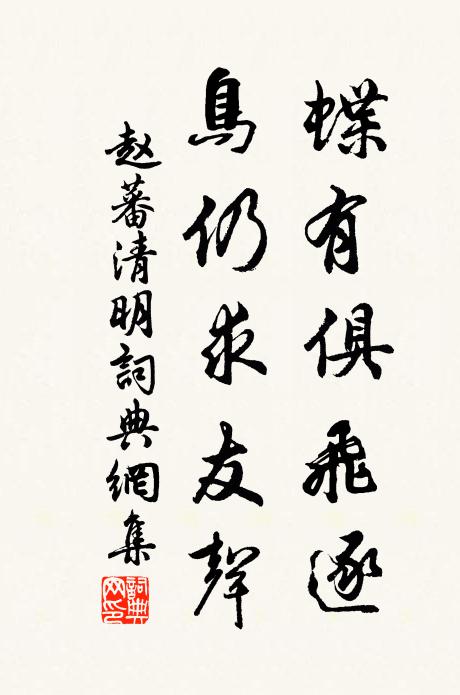 蝶有俱飛逐
鳥仍求友聲
赵蕃清明詞典網集
詞典網印